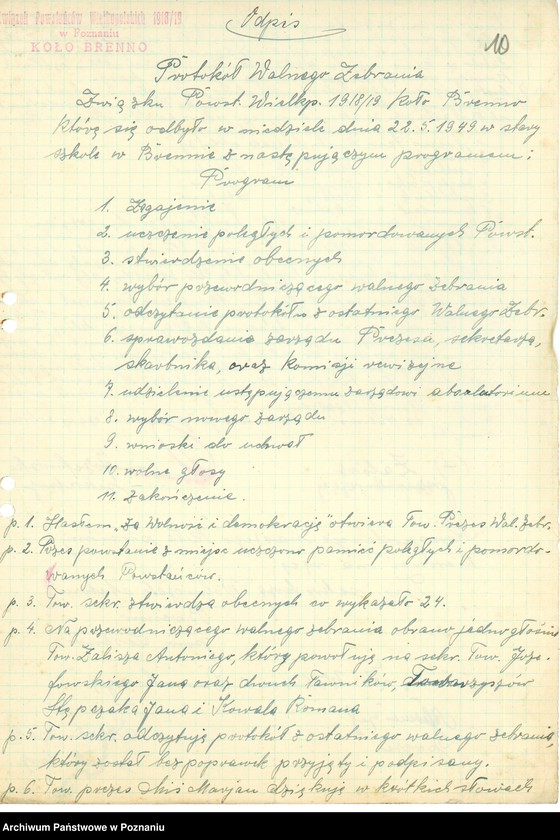 Związek Powstańców Wielkopolskich 1918/19
w Poznaniu
KOŁO BRENNO
Odpis
10
Protokół Walnego Zebrania
Związku Powst. Wielkp. 1918/19 Koło Brenno
które się odbyło w niedziele dnia 22.5.1949 w starej
szkole w Brennie z następującym programem:
Program
1. Zagajenie
2. uczczenie poległych i pomordowanych Powst.
3. stwierdzenie obecnych
4. wybór przewodniczącego walnego zebrania
5. odczytanie protokółu z ostatniego Walnego Zebr.
6. sprawozdania zarządu Prezesa, sekretarza,
skarbnika, oraz Komisji rewizyjne
7. udzielenie ustępującemu zarządowi absolutorium
8. wybór nowego zarządu
9. wnioski do uchwał
10. wolne głosy
11. zakończenie.
p. 1. Hasłem „za Wolność i demokrację" otwiera Tow. Prezes Wal. Zebr.
p. 2. Przez powstanie z miejsc uczczono pamięć poległych i pomordo-
wanych Powstańców.
p. 3. Tow. sekr. stwierdza obecnych co wykazało 24.
p. 4. Na przewodniczącego walnego zebrania obrano jednogłośnie
Tow. Zalisza Antoniego, który powołuje na sekr. Tow. Juze-
fowskiego Jana oraz dwuch Ławników, Towarzyszów
Stępczaka Jana i Kowala Romana
p. 5. Tow. sekr. odczytuję protokół z ostatniego walnego zebrania,
który został bez poprawek przyjęty i podpisany.
p. 6. Tow. prezes Marjan dziękuję w krótkich słowach
Archiwum Państwowe w Poznaniu